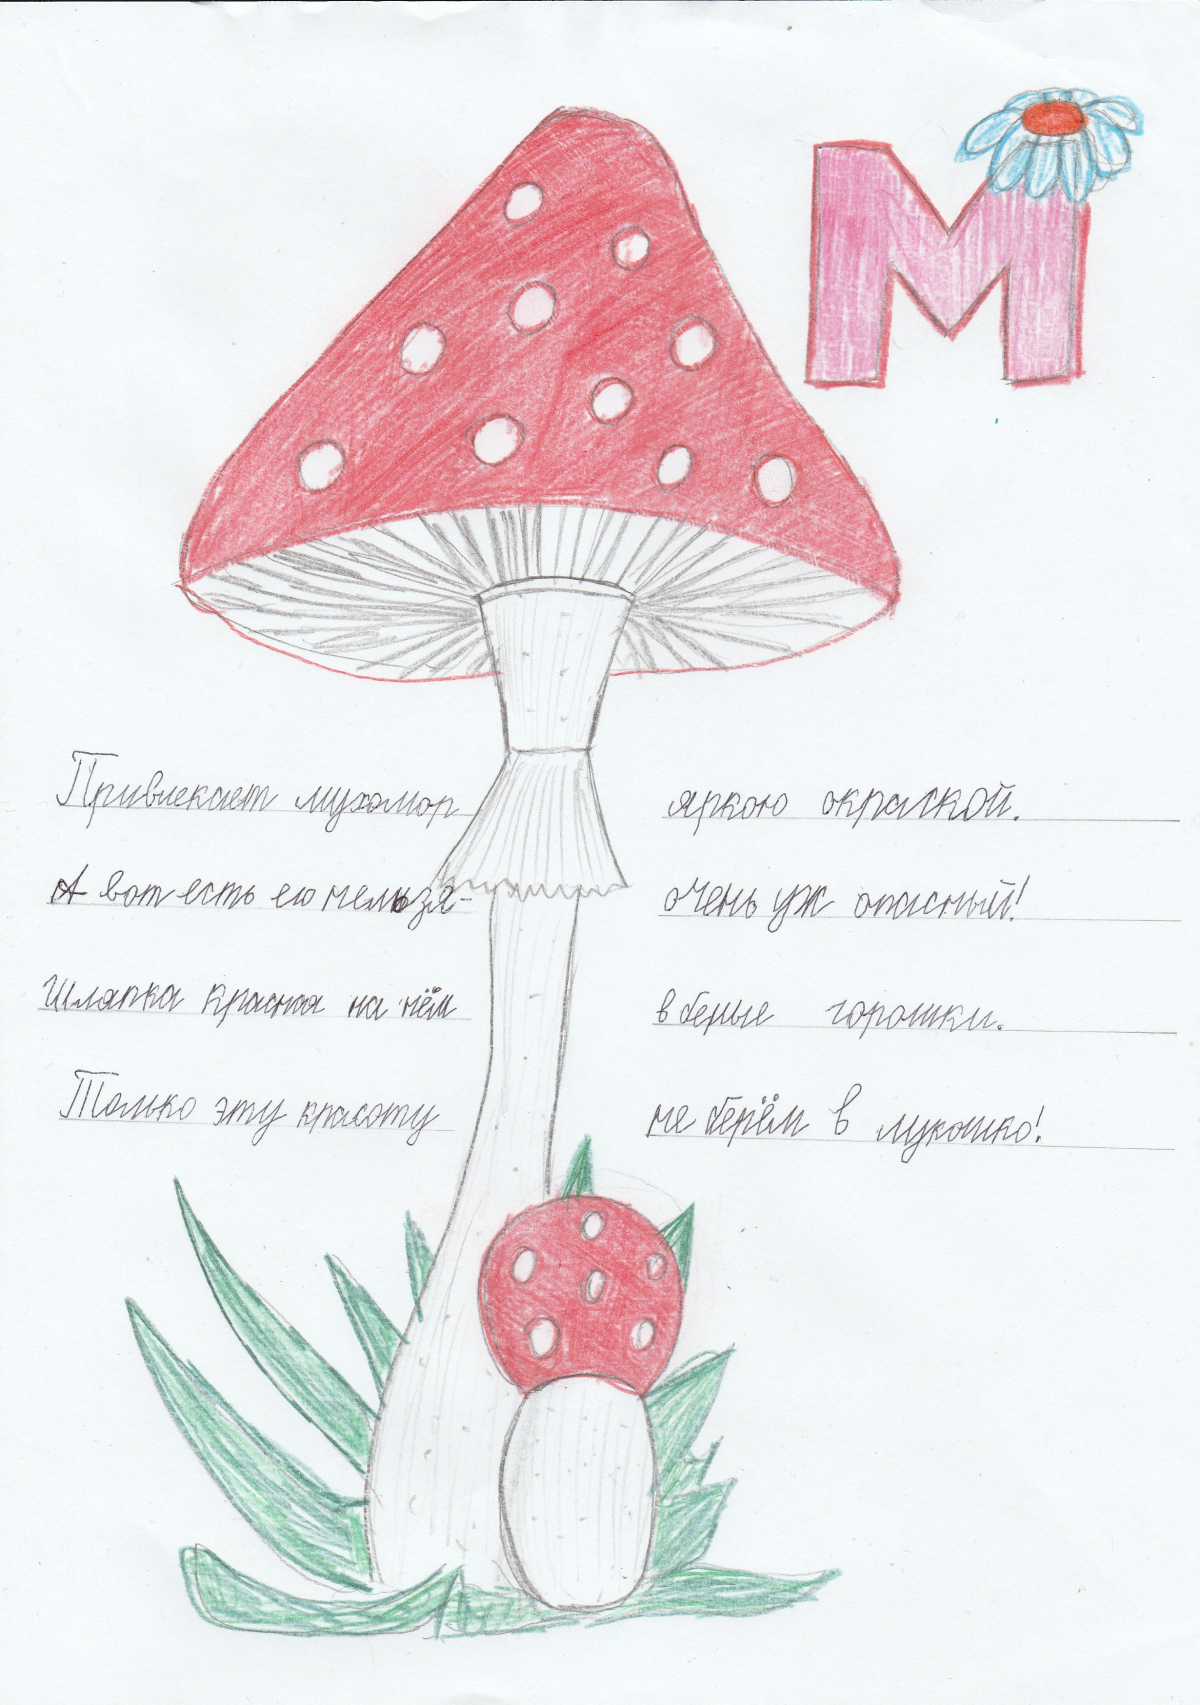 М
Привлекает мухомор яркою окраской.
А вот есть его нельзя- очень уж опасный!
Шляпка красная на нём в белые горошки.
Только эту красоту не берём в лукошко!